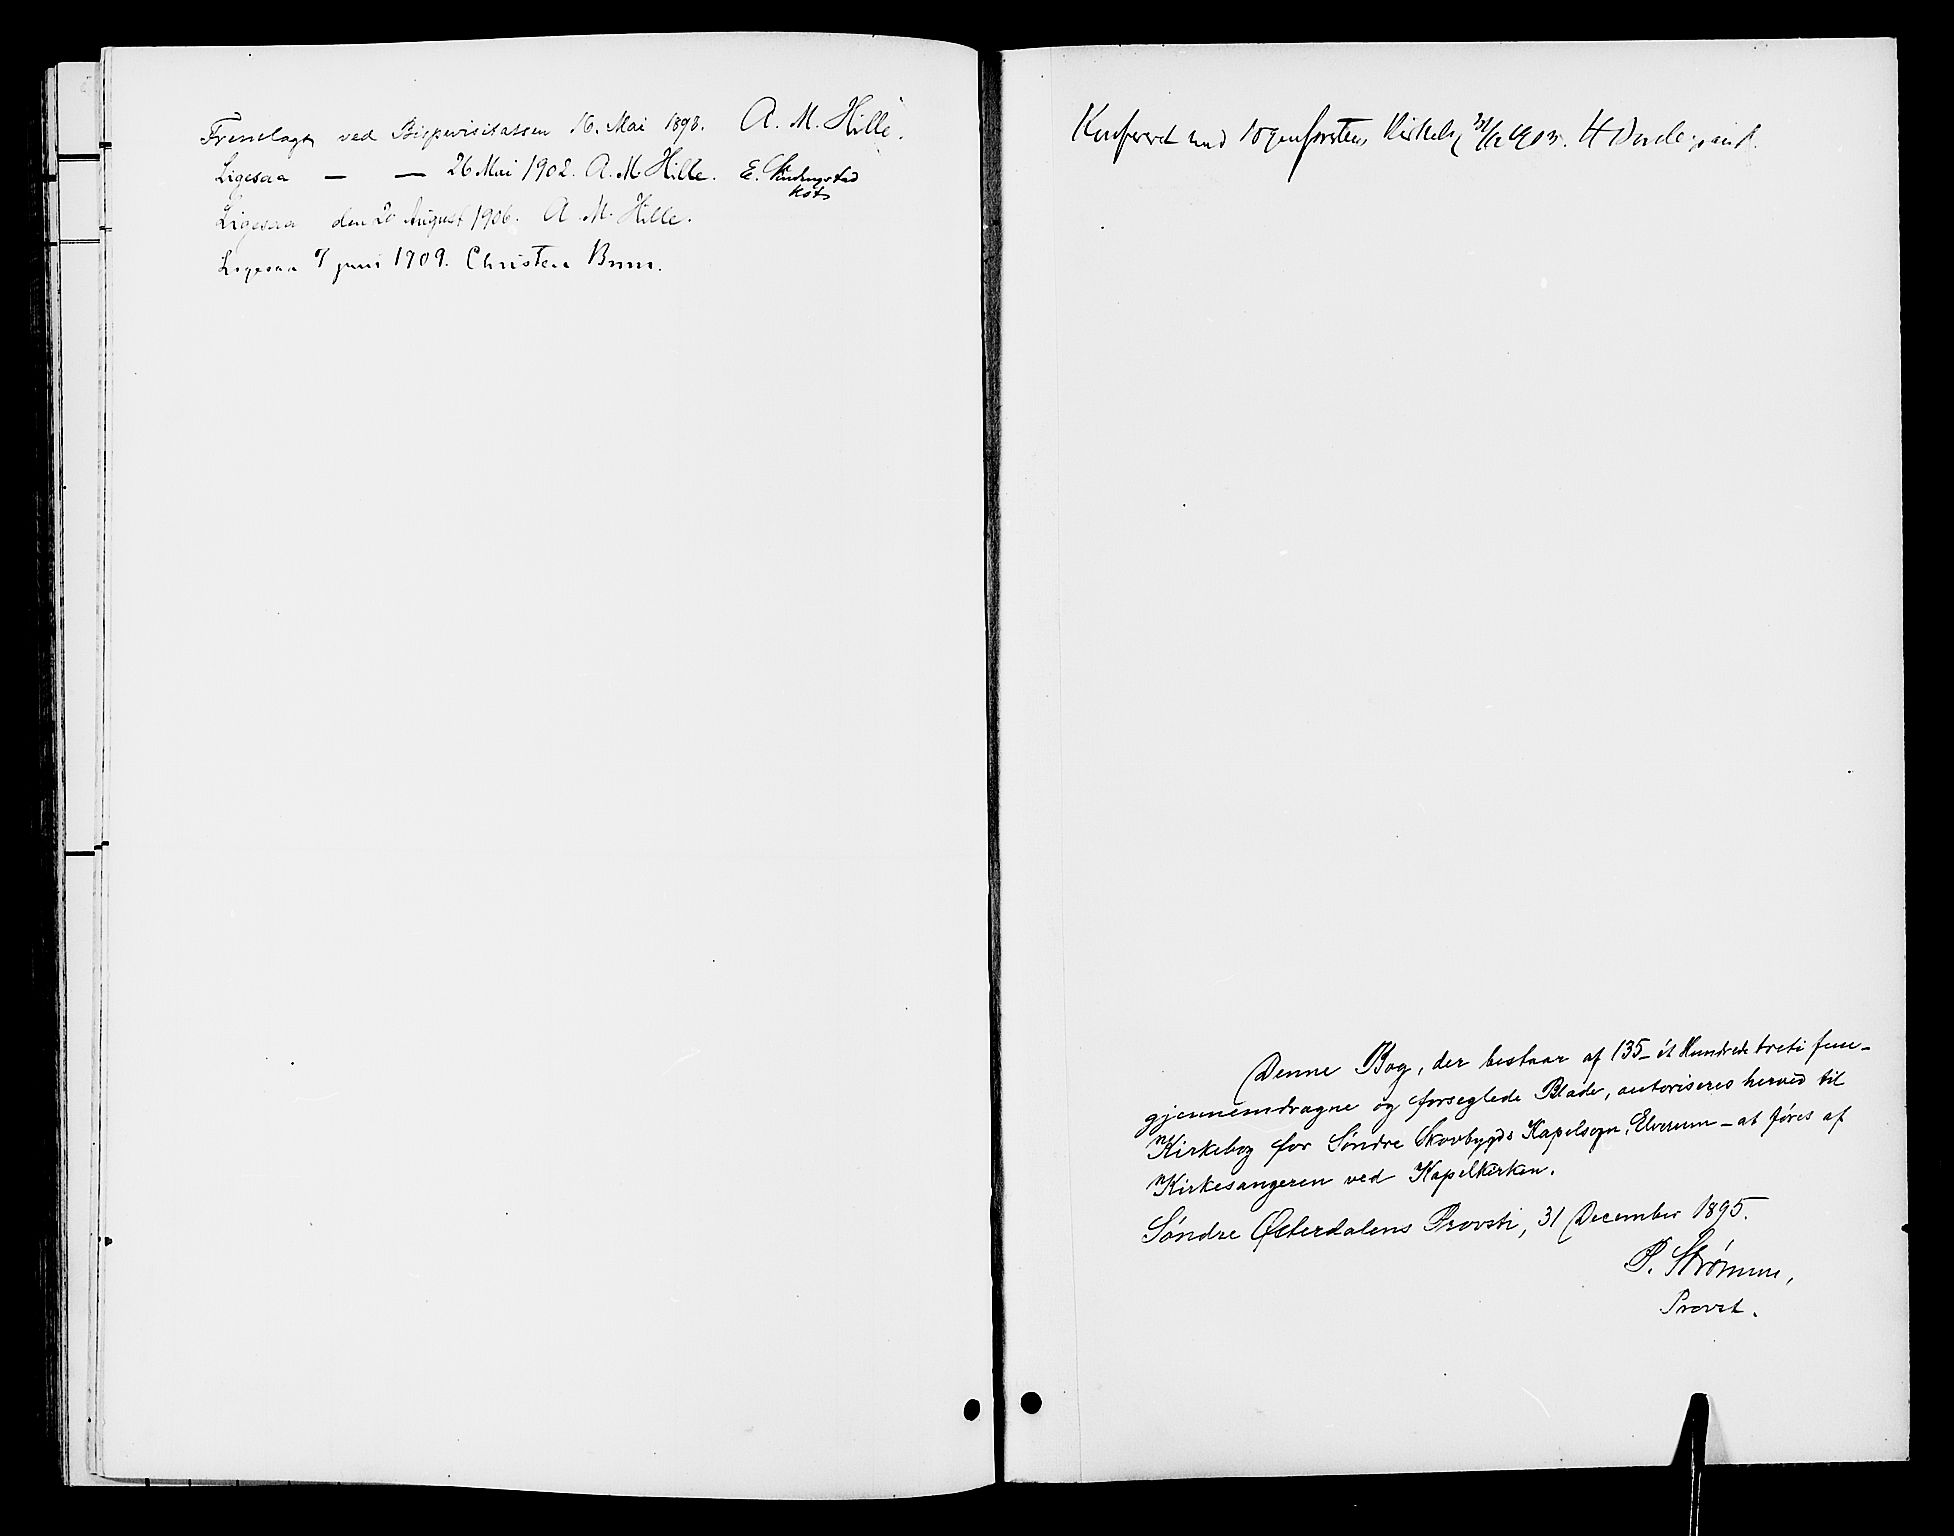 Fremlagt ved Bispevisitatsen 16. Mai 1898. A. M. Hille.
Ligesaa — — 26 Mai 1902. A. M. Hille. E.
Ligesaa den 20 August 1906. A. M. Hille.
Ligesaa juni 1909. Christen Brun.
Konfereret med Sogneprestens Kirkebog 1903.
Denne Bog, der bestaar af 135 - ét Hundrede treti fem -
gjennemdragne og forseglede Blade, autoriseres herved til
Kirkebog for Søndre Skovbygds Kapelsogn, Elverum - at føres af
Kirkesangeren ved Kapelkirken.
Søndre Østerdalens Provsti, 31 December 1895.
P. Strømme,
Provst.